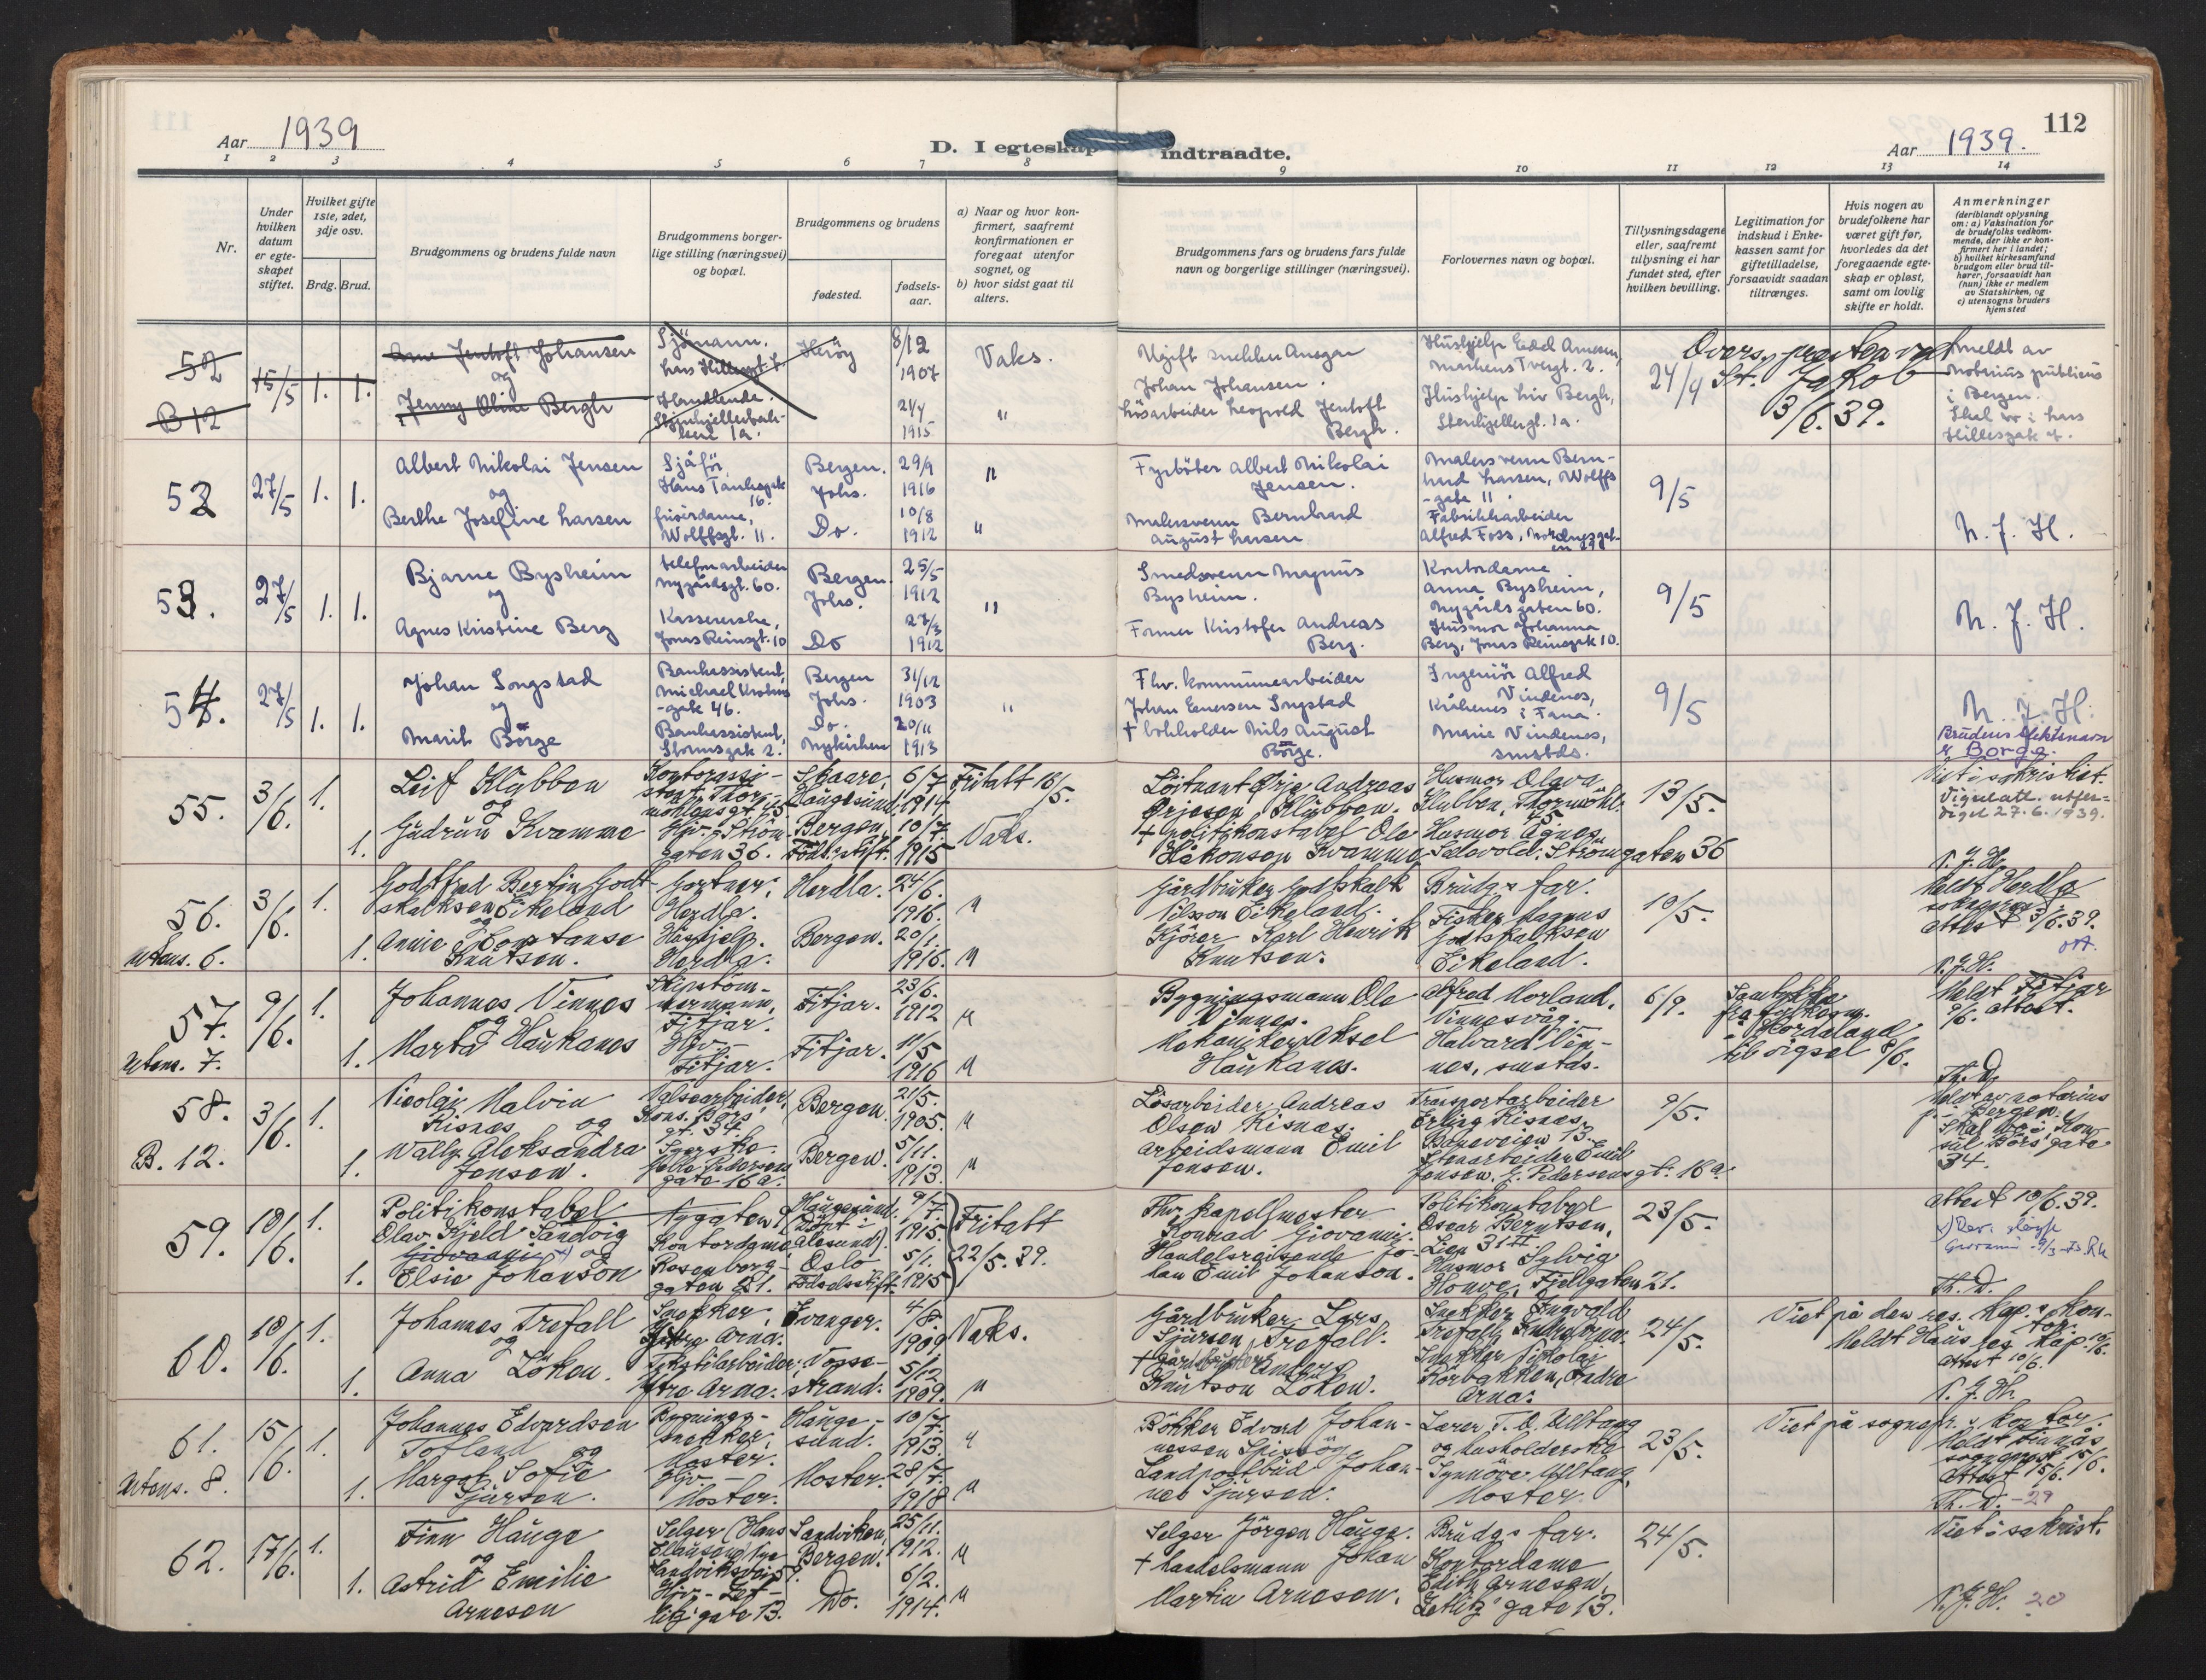 112
Aar 1939
D. I egteskap indtraadte.
Aar 1939.
1 2 3 4 5 6 7 8 9 10 11 12 13 14
Nr.
Under hvilken datum er egteskapet stiftet.
Hvilket gifte 1ste, 2det, 3dje osv.
Brdg. Brud.
Brudgommens og brudens fulde navn
Brudgommens borgerlige stilling (næringsvei) og bopæl.
Brudgommens og brudens
fødested.
fødselsaar.
a) Naar og hvor konfirmert, saafremt konfirmationen er foregaat utenfor sognet, og
b) hvor sidst gaat til alters.
Brudgommens fars og brudens fars fulde navn og borgerlige stillinger (næringsvei).
Forlovernes navn og bopæl.
Tillysningsdagene eller, saafremt tillysning ei har fundet sted, efter hvilken bevilling.
Legitimation for indskud i Enkekassen samt for giftetilladelse, forsaavidt saadan tiltrænges.
Hvis nogen av brudefolkene har været gift før, hvorledes da det foregaaende egteskap er opløst, samt om lovlig skifte er holdt.
Anmerkninger
(deriblandt oplysning om: a) Vaksination for de brudefolks vedkommende, der ikke er konfirmert her i landet;
b) hvilket kirkesamfund brudgom eller brud tilhører, forsaavidt han (hun) ikke er medlem av Statskirken, og
c) utensogns bruders hjemsted
52
B 12
15/5 1. 1.
Arne Jentoft Johansen
og
Jenny Oline Bergh
Sjömann.
Handlende.
Herøy
8/12 1907
21/4 1915
Vaks.
"
Ugift snekker Ansgar
Johan Johansen.
Løsarbeider Leopold Jentoft
Bergh.
Hushjelp Edel Arnesen,
Markens Tvergt. 2.
Hushjelp Liv Bergh,
Stenkjellergt. 1a.
24/4
St. Jakob
3/6.39.
Meldt av
Notarius publicus
i Bergen.
52
27/5 1. 1.
Albert Nikolai Jensen
og
Berthe Josefine Larsen
Sjåför,
Hans Tanksgate
16.
frisørdame,
Wolffsgt. 11.
Bergen.
Johs.
Do.
29/9
1916
10/8
1912
"
"
Fyrböter Albert Nikolai
Jensen.
Malersvenn Bernhard
August Larsen
Malersvenn Bern-
hard Larsen, Wolffs
-gate 11.
Fabrikkarbeider
Alfred Foss, Nordnesgat-
en 29
9/5
N. J. H.
53.
27/5 1. 1.
Bjarne Bysheim
og
Agnes Kristine Berg
telefonarbeider
Nygårdsgt. 60.
Kassererske,
Jonas Reinsgt. 10
Bergen.
Johs.
Do
25/5
1912
27/3
1912
"
Smedsvenn Magnus
Bysheim.
Former Kristofer Andreas
Berg.
Kontordame
Anna Bysheim,
Nygårdsgaten 60.
Husmor Johanna
Berg, Jonas Reinsgate 10.
9/5
N. J. H.
54.
27/5 1. 1.
Johan Songstad
og
Marit Börge
Bankassistent,
Michael Krohns
-gate 46.
Bankassistent,
Stormsgate 2.
Bergen
Johs.
Do.
Nykirken
31/12
1903
20/11
1913
"
Fhv. kommunearbeider
Johan Einersen Songstad
+ bokholder Nils August
Börge.
Ingeniör Alfred
Vindenes,
Kråkenes i Fana.
Marie Vindenes,
smstds.
9/5
N. J. H.
Brudens slektsnavn
er Borge.
55.
3/6. 1.
1.
Leif Klubben
og
Gudrun Kvamme
Kontorassi-
stent, Thor-
möhlensgt. 45
Hjv. Ström-
gaten 36.
Skaare,
Haugesund,
Bergen,
Föds.stift.
6/7
1914
10/7.
1915
Fritatt 16/5.
Vaks.
Löitnant Örje Andreas
Örjesen Klubben.
+ politikonstabel Ole
Håkonson Kvamme
Husmor Olava
Klubben, Thormöhl.
45
Husmor Agnes
Selevold, Strömgaten 36
13/5.
Viet i sakristiet.
Vigselatt. utfer-
diget 27.6.1939.
N. J. H.
56.
utens. 6.
3/6. 1.
1.
Godtfred Bertin Godt-
skalksen Eikeland
og
Annie Konstanse
Knutsen.
Gartner,
Herdla.
Hushjelp.
Herdla.
Herdla.
Bergen.
24/6.
1916.
20/1.
1916.
"
"
Gårdbruker Godtskalk
Nilsson Eikeland.
Kjörer Karl Henrik
Knutsen.
Brudg.s far.
Fisker Magnus
Godtskalksen
Eikeland.
10/5.
Meldt Herdla
attest 3/6.39.
N. J. H.
57.
Utens. 7.
9/6. 1.
1.
Johannes Vinnes
og
Marta Haukanes
Skipstöm-
mermann,
Fitjar.
Hjv.
Fitjar.
Fitjar.
Fitjar.
23/6.
1912
11/5
1916
"
"
Bygningsmann Ole
Vinnes.
Mekaniker Aksel
Haukanes.
Alfred Morland,
Vinnesvåg.
Halvard Vin-
nes, smstds.
6/9.
Samtykke
fra fylkesm.
i Hordaland
til vigsel 8/6.
Meldt Fitjar
9/6. attest.
Th. D.
58.
B. 12.
3/6. 1.
1.
Nicolai Malvin
Risnes og
Wally Aleksandra
Jensen.
Valsearbeider,
Kons. Börs'
gt. 34
Syerske
Jekt. Pedersens
gate 16a.
Bergen.
Bergen.
21/5.
1905.
5/11.
1913.
"
"
Lösarbeider Andreas
Olsen Risnes.
Arbeidsmann Emil
Jensen.
Transportarbeider
Erling Risnes,
Baneveien 13.
Stenarbeider Emil
Jensen, J. Pedersensgt. 16a.
9/5.
Meldt av notarius
p. i Bergen.
Skal bo i Kon-
sul Börs' gate
34.
59.
10/6. 1.
1.
Politikonstabel
Olav Kjeld Sandvig
Giovanni og
Elsie Johanson
Nygaten 9
Kontordame
Rosenberg-
gaten 21.
Haugesund.
(Döpt i
Ålesund).
Oslo
Fødselsstift.
9/7.
1915.
5/1.
1915
Fritatt
22/5.39.
Fhv. kapellmester
Konrad Giovanni.
Handelsreisende Jo-
han Emil Johanson.
Politikonstabel
Oscar Berntsen,
Lien 31 II
Husmor Sylvia
Honve, Fjellgaten 21.
23/5.
attest 10/6.39.
Th. D.
60.
10/6. 1.
1.
Johannes Trefall
og
Anna Löken.
Snekker,
Ytre Arna.
Tekstilarbeider,
Ytre Arna.
Evanger.
Vosse-
strand.
4/8.
1909
5/12
1909.
Vaks.
"
Gårdbruker Lars
Sjursen Trefall.
+ Gårdbruker Anders
Knutson Löken.
Snekker Ingvald
Trefall,
Snekker Nikolai
Korbakken, Indre
Arna.
24/5.
Viet på den res. kap.s kon-
tor.
Meldt Haus res. kap. 10/6.
attest 10/6.
N. J. H.
61.
Utens. 8.
15/6. 1.
1.
Johannes Edvardsen
Totland og
Margot Sofie
Sjursen.
Bygnings-
snekker,
Moster.
Hjv.
Moster.
Hauge-
sund.
Moster.
10/7.
1913.
28/7.
1918
"
"
Bökker Edvard Johan-
nessen Spissöy.
Landpostbud Johan-
nes Sjursen.
Lærer T. O. Ueltang
og husholderske
Synnöve Ueltang,
Moster.
23/5.
Viet på sognepr.s kontor.
Meldt Finnås
sogneprest 15/6.
attest 15/6.
Th. D. -29
62.
17/6. 1.
1.
Finn Hauge
og
Astrid Emilie
Arnesen
Selger (Hans
Hjv. - Zet-
litz' gate 13.
Sandviken,
Bergen.
Do.
25/11.
1912.
6/2.
1914.
"
"
Selger Jörgen Hauge.
+ handelsmann Johan
Martin Arnesen.
Brudg.s far.
Kontordame
Edith Arnesen,
Zetlitz' gate 13.
24/5.
Viet i sakrist.
N. J. H. 20